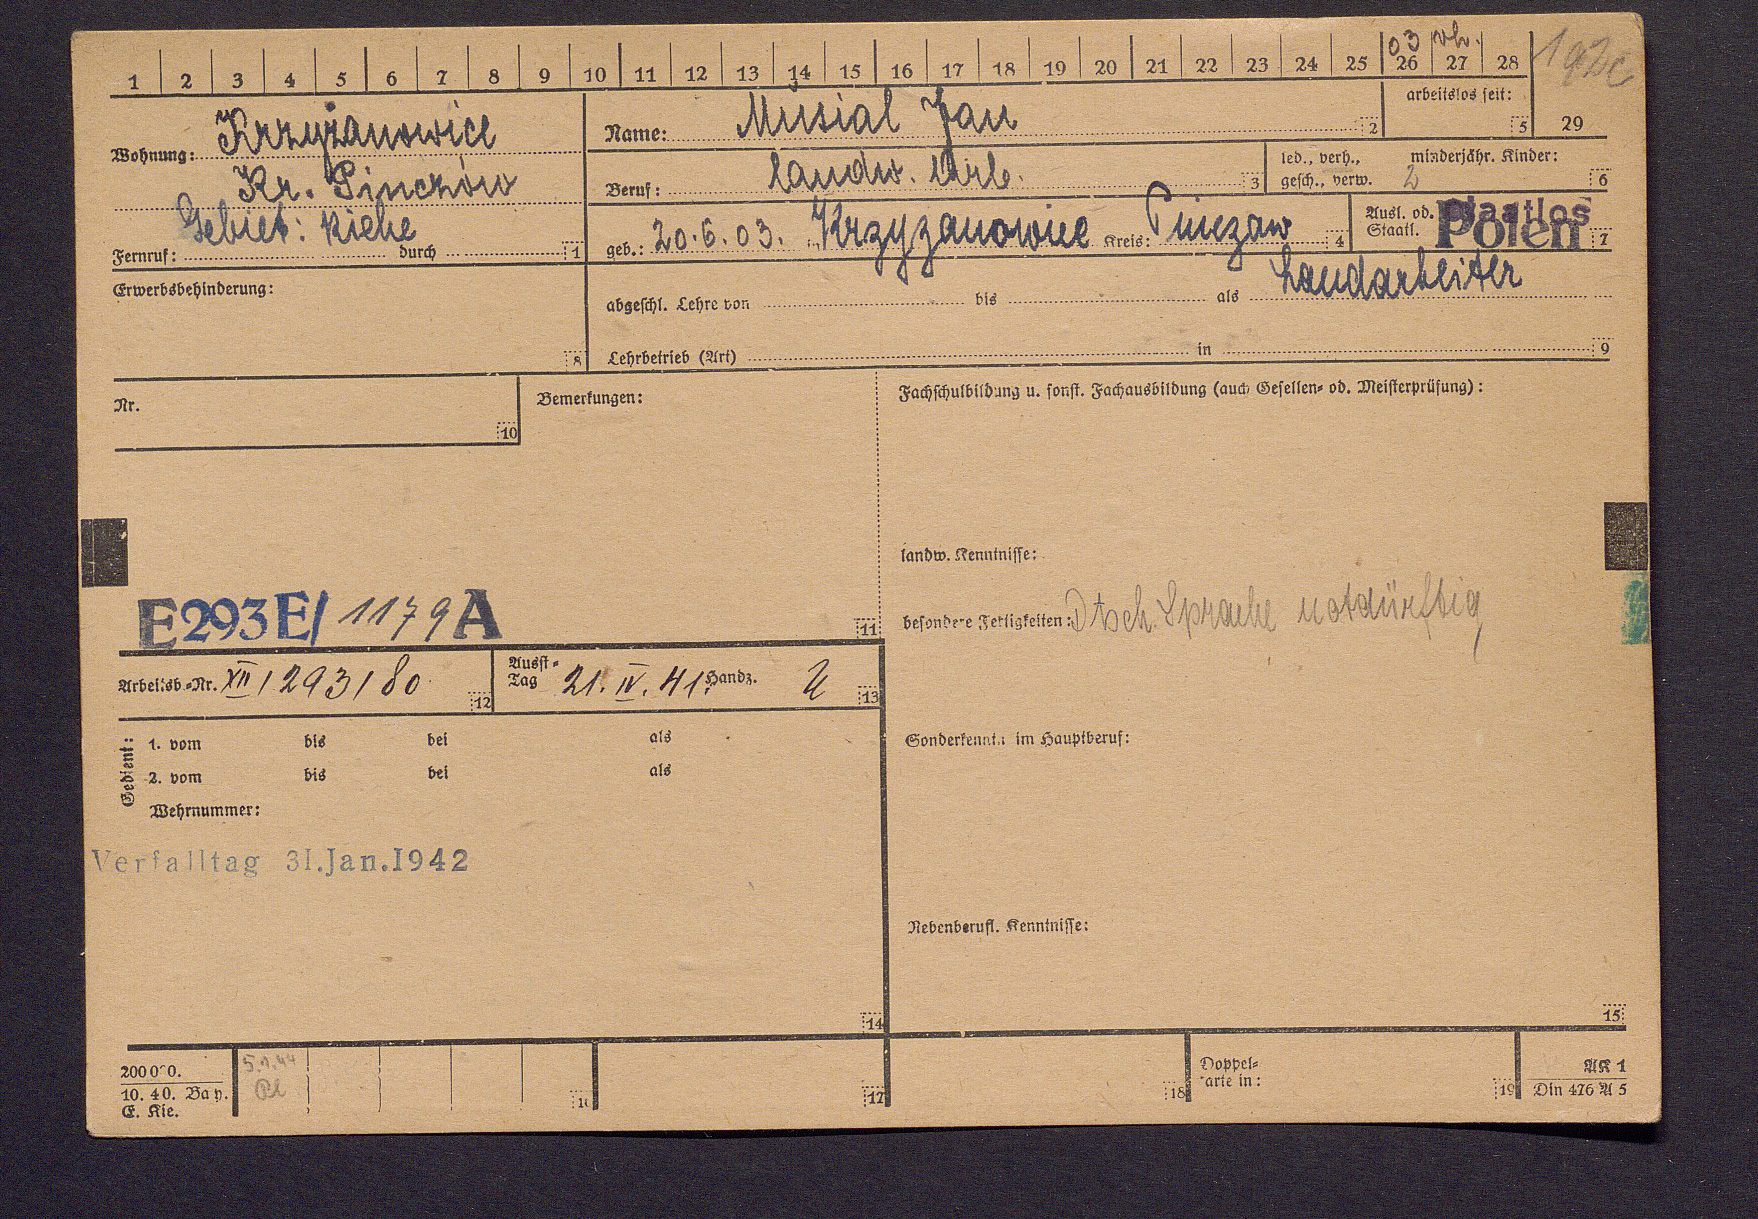 1 2 3 4 5 6 7 8 9 10 11 12 13 14 15 16 17 18 19 20 21 22 23 24 25 26 27 28
03 vh.
arbeitslos seit: 5 29
Wohnung: Krzyżanowice
Kr. Pinczów
Gebiet: Kielce
Fernruf: durch 1
Name: Musial Jan 2
Beruf: landw. Arb. 3
led., verh., gesch., verw.
minderjähr. Kinder: 2 6
geb.: 20.6.03. in Krzyzanowice Kreis: Pinczow 4
Ausl. od. Staatl. staatlos Polen 7
Erwerbsbehinderung: 8
abgeschl. Lehre von bis als Landarbeiter
Lehrbetrieb (Art) in 9
Nr. 10
Bemerkungen:
Fachschulbildung u. sonst. Fachausbildung (auch Gesellen- od. Meisterprüfung):
landw. Kenntnisse:
E293E/ 1179 A 11
besondere Fertigkeiten: Dtsch. Sprache notdürftig
Arbeitsb.-Nr. XII/293/80 12
Ausst-Tag 21.IV.41. Handz. 13
Sonderkenntn. im Hauptberuf:
Gedient:
1. vom bis bei als
2. vom bis bei als
Wehrnummer:
Verfalltag 31.Jan.1942
Nebenberufl. Kenntnisse:
14
15
200000.
10. 40. Bay.
E. Kie.
5.1.44
16
17
18
Doppel-
karte in: 19
AK 1
Din 476 A 5